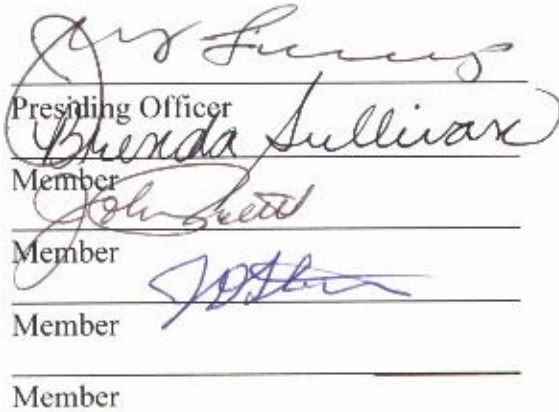 Presiding Officer
Brenda Sullivan
Member
John
Member
Member
Member